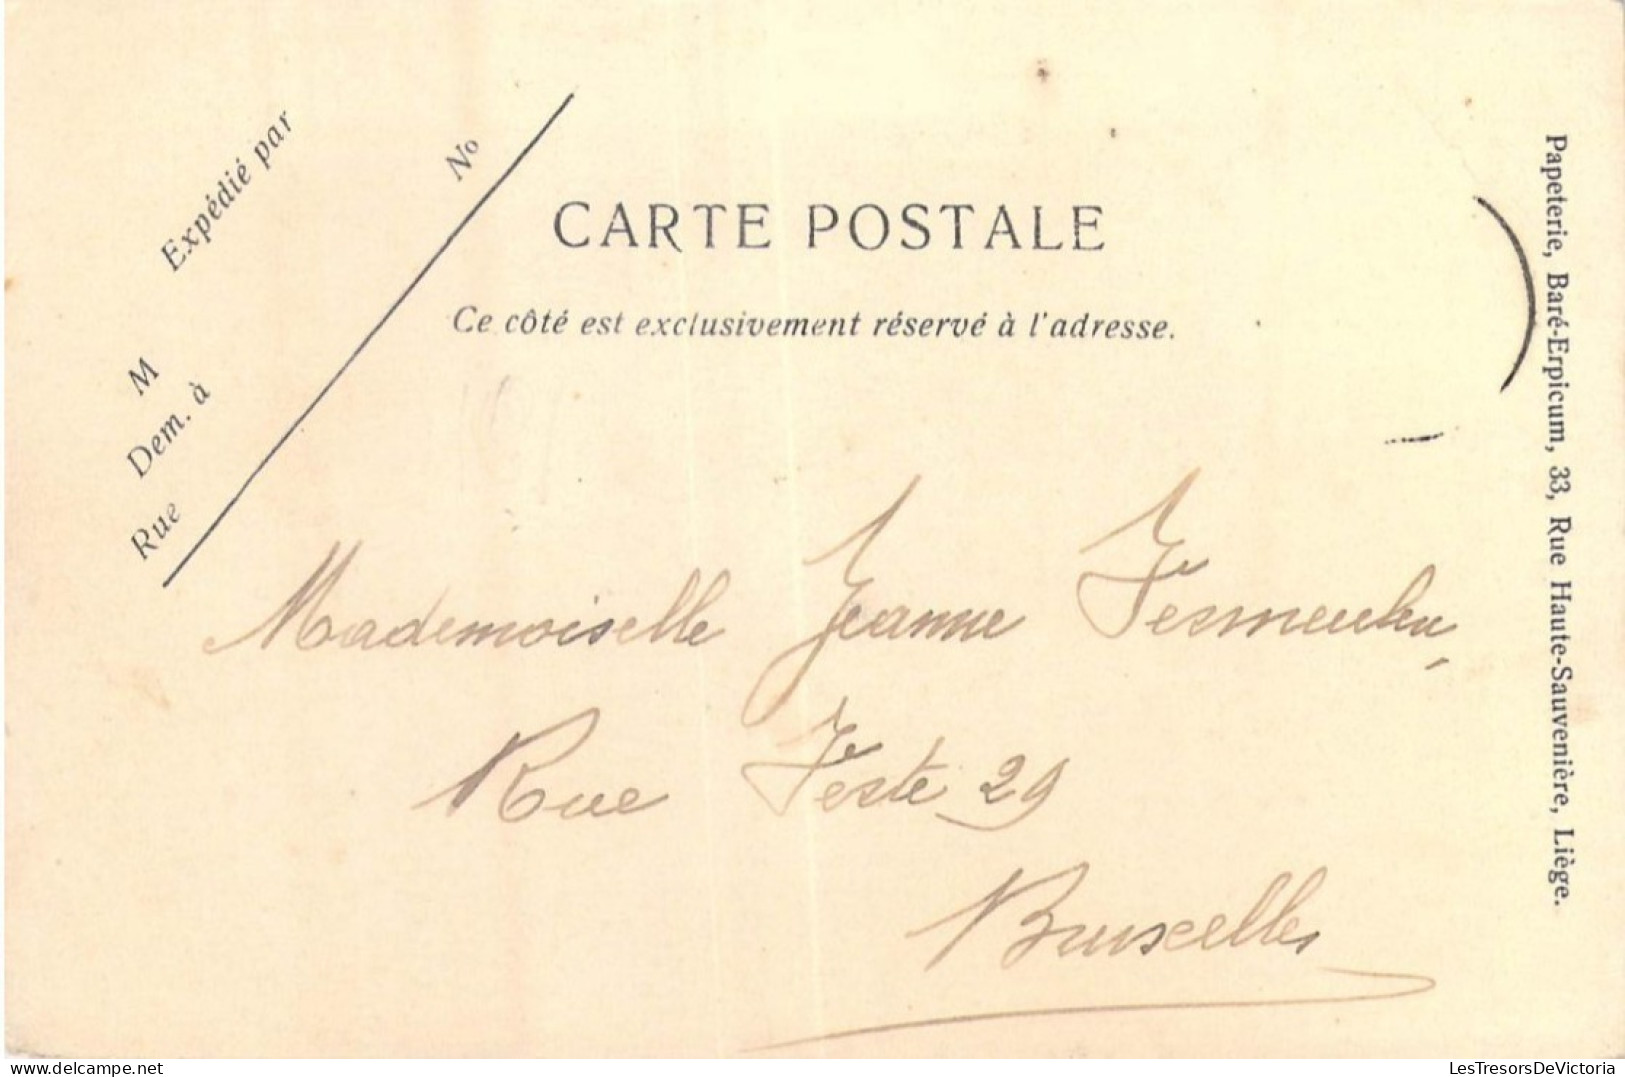 Expédié par
M
Dem. à
Rue
No
CARTE POSTALE
Ce côté est exclusivement réservé à l'adresse.
Mademoiselle Jeanne
Rue Teste 29
Bruxelles
Papeterie, Baré-Erpicum, 33, Rue Haute-Sauvenière, Liège.
delcampe.net
LesTresorsDeVictoria